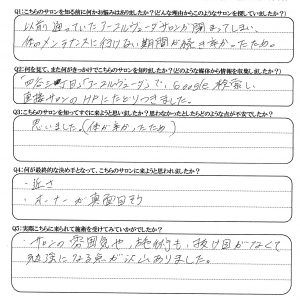 Q1:こちらのサロンを知る前に何かお悩みはありましたか?どんな理由からこのようなサロンを探していましたか?
以前通っていたアーユルヴェーダサロンが閉まってしまい、
体のメンテナンスに行けない期間が続き辛かったため。
Q2:何を見て、また何がきっかけでこちらのサロンを知りましたか?(どのような媒体から情報を収集しましたか?)
四谷三丁目「アーユルヴェーダ」で、Google 検索し
直接サロンのHPにたどりつきました。
Q3:こちらのサロンを知ってすぐに来ようと思いましたか?思わなかったとしたらどのような点が不安でしたか?
思いました。(体が辛かったため)
Q4:何が最終的な決め手となって、こちらのサロンに来ようと思われましたか?
・近さ
・オーナーが真面目そう
Q5:実際こちらに来られて施術を受けてみていかがでしたか?
・サロンの雰囲気や、施術も、抜け目がなくて
勉強になる点が沢山ありました。